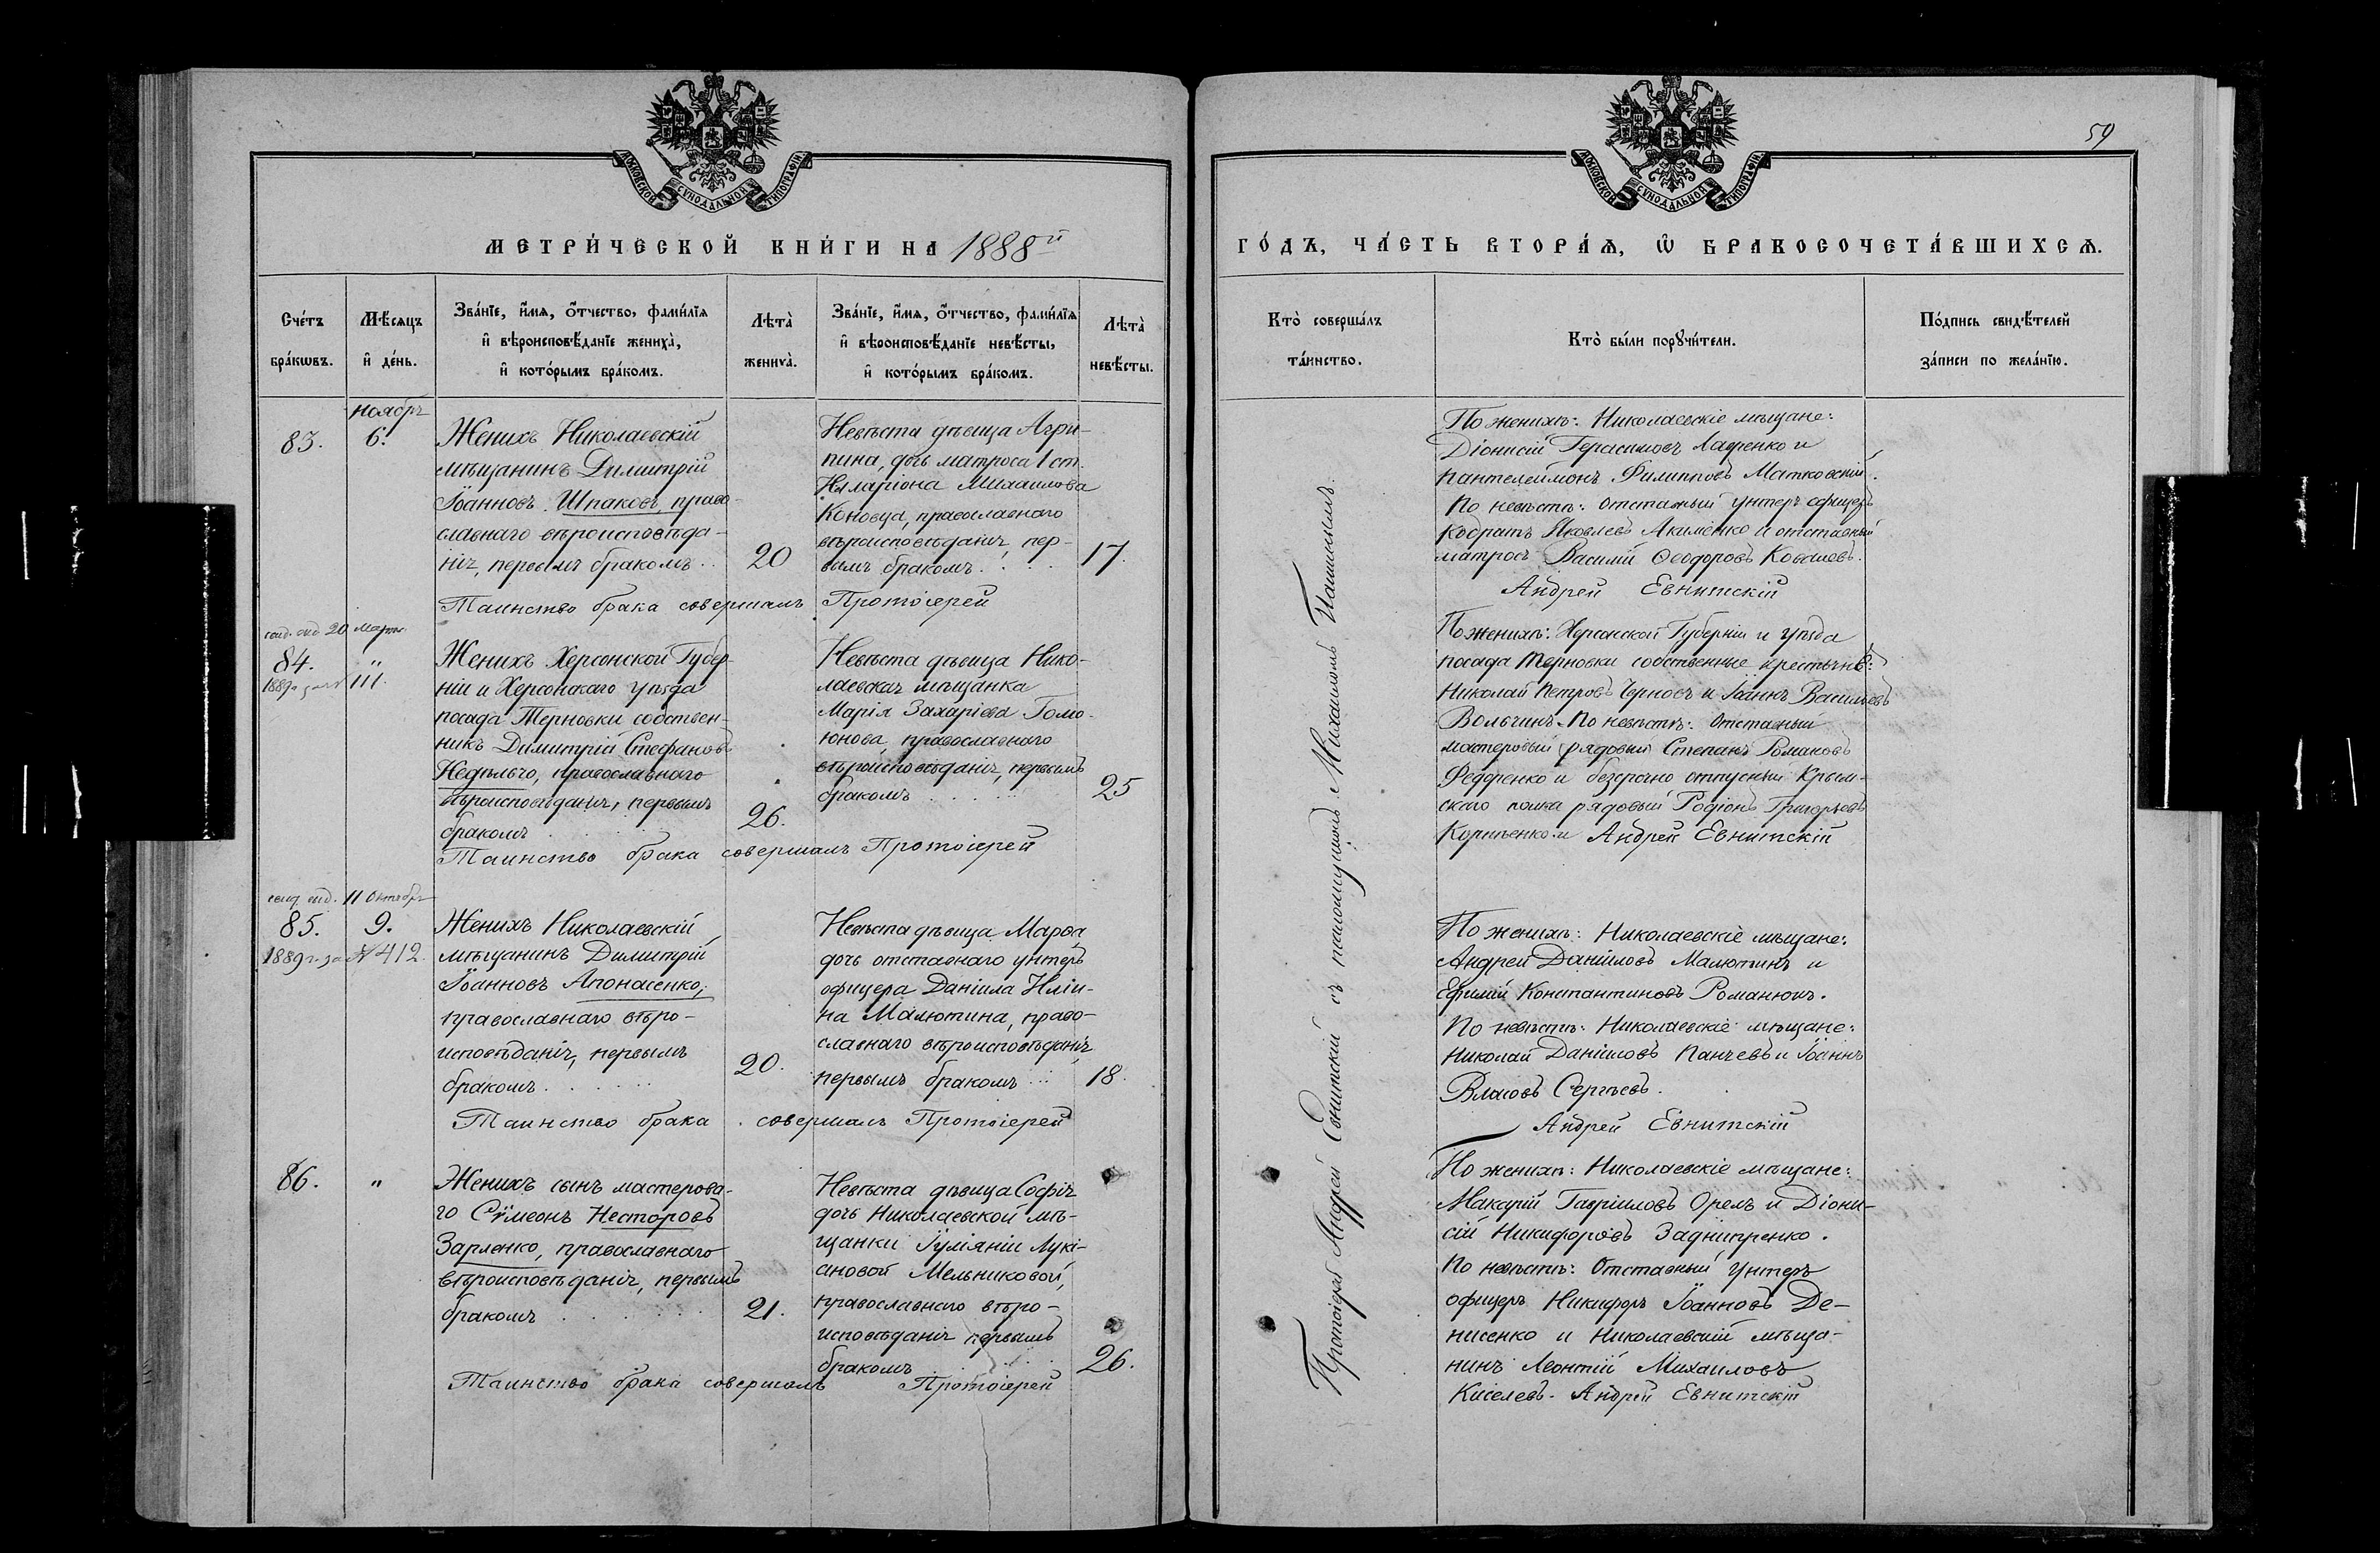 МОСКОВСКОЙ СѴНОДАЛЬНОЙ ТИПОГРАФІИ
МЕТРИ́ЧЕСКОЙ КНИ́ГИ НА 1888й
Сче́тъ бра́кѡвъ.
Мѣ́сяцъ и҆ де́нь.
Зва́нїе, и҆́мѧ, ѻ҆́тчество, фами́лїѧ
и҆ вѣроисповѣ́данїе жениха̀,
и҆ кото́рымъ бра́комъ.
Лѣта̀ жениха̀.
Зва́нїе, и҆́мѧ, ѻ҆́тчество, фами́лїѧ
и҆ вѣроисповѣ́данїе невѣ́сты,
и҆ кото́рымъ бра́комъ.
Лѣта̀ невѣ́сты.
ноябрь
83.
6.
Женихъ Николаевскій
мѣщанинъ Димитрій
Іоанновъ Шпаковъ, право-
славнаго вѣроисповѣда-
нія, первымъ бракомъ..
20
Невѣста дѣвица Агри-
пина, дочь матроса 1 ст.
Иларіона Михаилова
Коновца, православнаго
вѣроисповѣданія, пер-
вымъ бракомъ....
17.
Таинство брака совершалъ Протоіерей
20 Марта
84.
"
1889 111.
Женихъ Херсонской Губер-
ніи и Херсонскаго уѣзда
посада Терновки собствен-
никъ Димитрій Стефановъ
Недѣльчо, православнаго
вѣроисповѣданія, первымъ
бракомъ
26.
Невѣста дѣвица Нико-
лаевская мѣщанка
Марія Захаріева Гомо-
юнова, православнаго
вѣроисповѣданія, первымъ
бракомъ
25
Таинство брака совершалъ Протоіерей
11 Октября
85.
9.
1889 г. за № 412.
Женихъ Николаевскій
мѣщанинъ Димитрій
Іоанновъ Апонасенко,
православнаго вѣро-
исповѣданія, первымъ
бракомъ.
20.
Невѣста дѣвица Марѳа
дочь отставнаго унтеръ
офицера Даніила Иліи-
на Малютина, право-
славнаго вѣроисповѣданія
первымъ бракомъ
18.
Таинство брака совершалъ Протоіерей
86.
"
Женихъ сынъ мастерова-
го Сѵмеонъ Несторовъ
Зарленко, православнаго
вѣроисповѣданія, первымъ
бракомъ
21.
Невѣста дѣвица Софія
дочь Николаевской мѣ-
щанки Іуліаніи Лукі-
ановой Мельниковой,
православнаго вѣро-
исповѣданія первымъ
бракомъ
26.
Таинство брака совершалъ Протоіерей
59
МОСКОВСКОЙ СѴНОДАЛЬНОЙ ТИПОГРАФІИ
ГО́ДЪ, ЧА́СТЬ ВТОРА́Ѧ, Ѽ БРАКОСОЧЕТА́ВШИХСѦ.
Кто̀ соверша́лъ
та́инство.
Кто̀ бы́ли порꙋчи́тели.
По́дпись свидѣ́телей
за́писи по жела́нїю.
Протоіерей Андрей Евнитскій съ псаломщикомъ Михаиломъ
По женихѣ: Николаевскіе мѣщане:
Діонисій Герасимовъ Лафенко и
Пантелеймонъ Филипповъ Матковскій.
По невѣстѣ: отставный унтеръ офицеръ
Кодратъ Яковлевъ Акименко и отставный
матросъ Василій Ѳеодоровъ Ковалевъ.
Андрей Евнитскій
По женихѣ: Херсонской Губерніи и уѣзда
посада Терновки собственные крестьяне:
Николай Петровъ Черновъ и Іоаннъ Васильевъ
Вольчинъ. По невѣстѣ: отставный
мастеровый рядовый Степанъ Романовъ
Федоренко и безсрочно отпускный Крым-
скаго полка рядовый Родіонъ Григорьевъ
Андрей Евнитскій
По женихѣ: Николаевскіе мѣщане:
Андрей Даніиловъ Малютинъ и
Ефимій Константиновъ Романюкъ.
По невѣстѣ: Николаевскіе мѣщане:
Николай Даніиловъ Панчевъ и Іоаннъ
Власовъ Сергѣевъ.
Андрей Евнитскій
По женихѣ: Николаевскіе мѣщане:
Макарій Гавріиловъ Орелъ и Діони-
сій Никифоровъ Заднипренко.
По невѣстѣ: Отставный Унтеръ
офицеръ Никифоръ Іоанновъ Де-
нисенко и Николаевскій мѣща-
нинъ Леонтій Михаиловъ
Киселевъ. Андрей Евнитскій